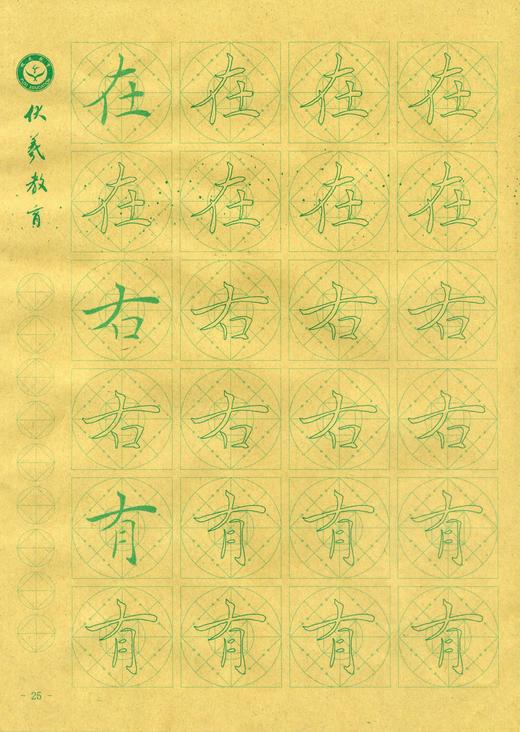 伏羲教育
在在在在
在在在在
右右右右
右右右右
有有有有
有有有有
- 25 -